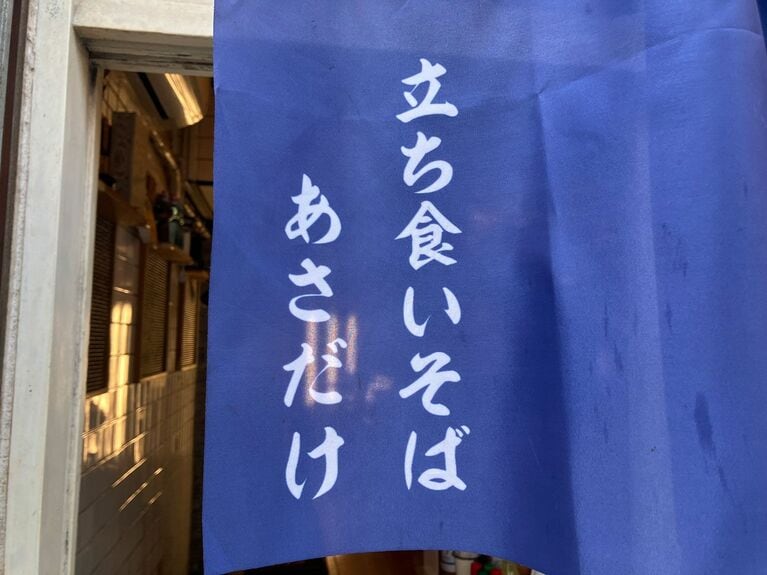 立ち食いそば
あさだけ